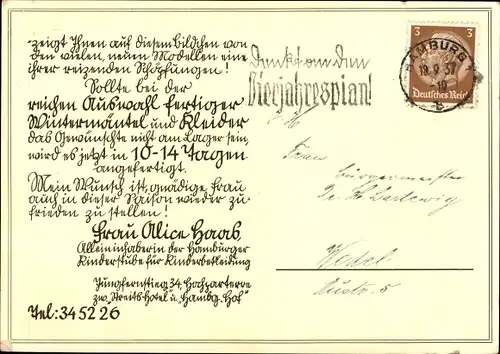 zeigt Ihnen auf diesem Bildchen von
den vielen, neuen Modellen eine
ihrer reizenden Schöpfungen!
Sollte bei der
reichen Auswahl fertiger
Wintermäntel und Kleider
das Gewünschte nicht am Lager sein,
wird es jetzt in 10-14 Tagen
angefertigt.
Mein Wunsch ist, gnädige Frau
auch in dieser Saison wieder zu-
frieden zu stellen!
Frau Alice Haas
Alleininhaberin der Hamburger
Kinderstube für Kinderbekleidung
Jungfernstieg 34, Hochparterre
zw. "Streits Hotel u. "Hambg. Hof"
Tel: 34 52 26
Denkt an den
Vierjahresplan!
HAMBURG
3 3
Deutsches Reich
Frau
Bürgermeister
Dr.
Wesel